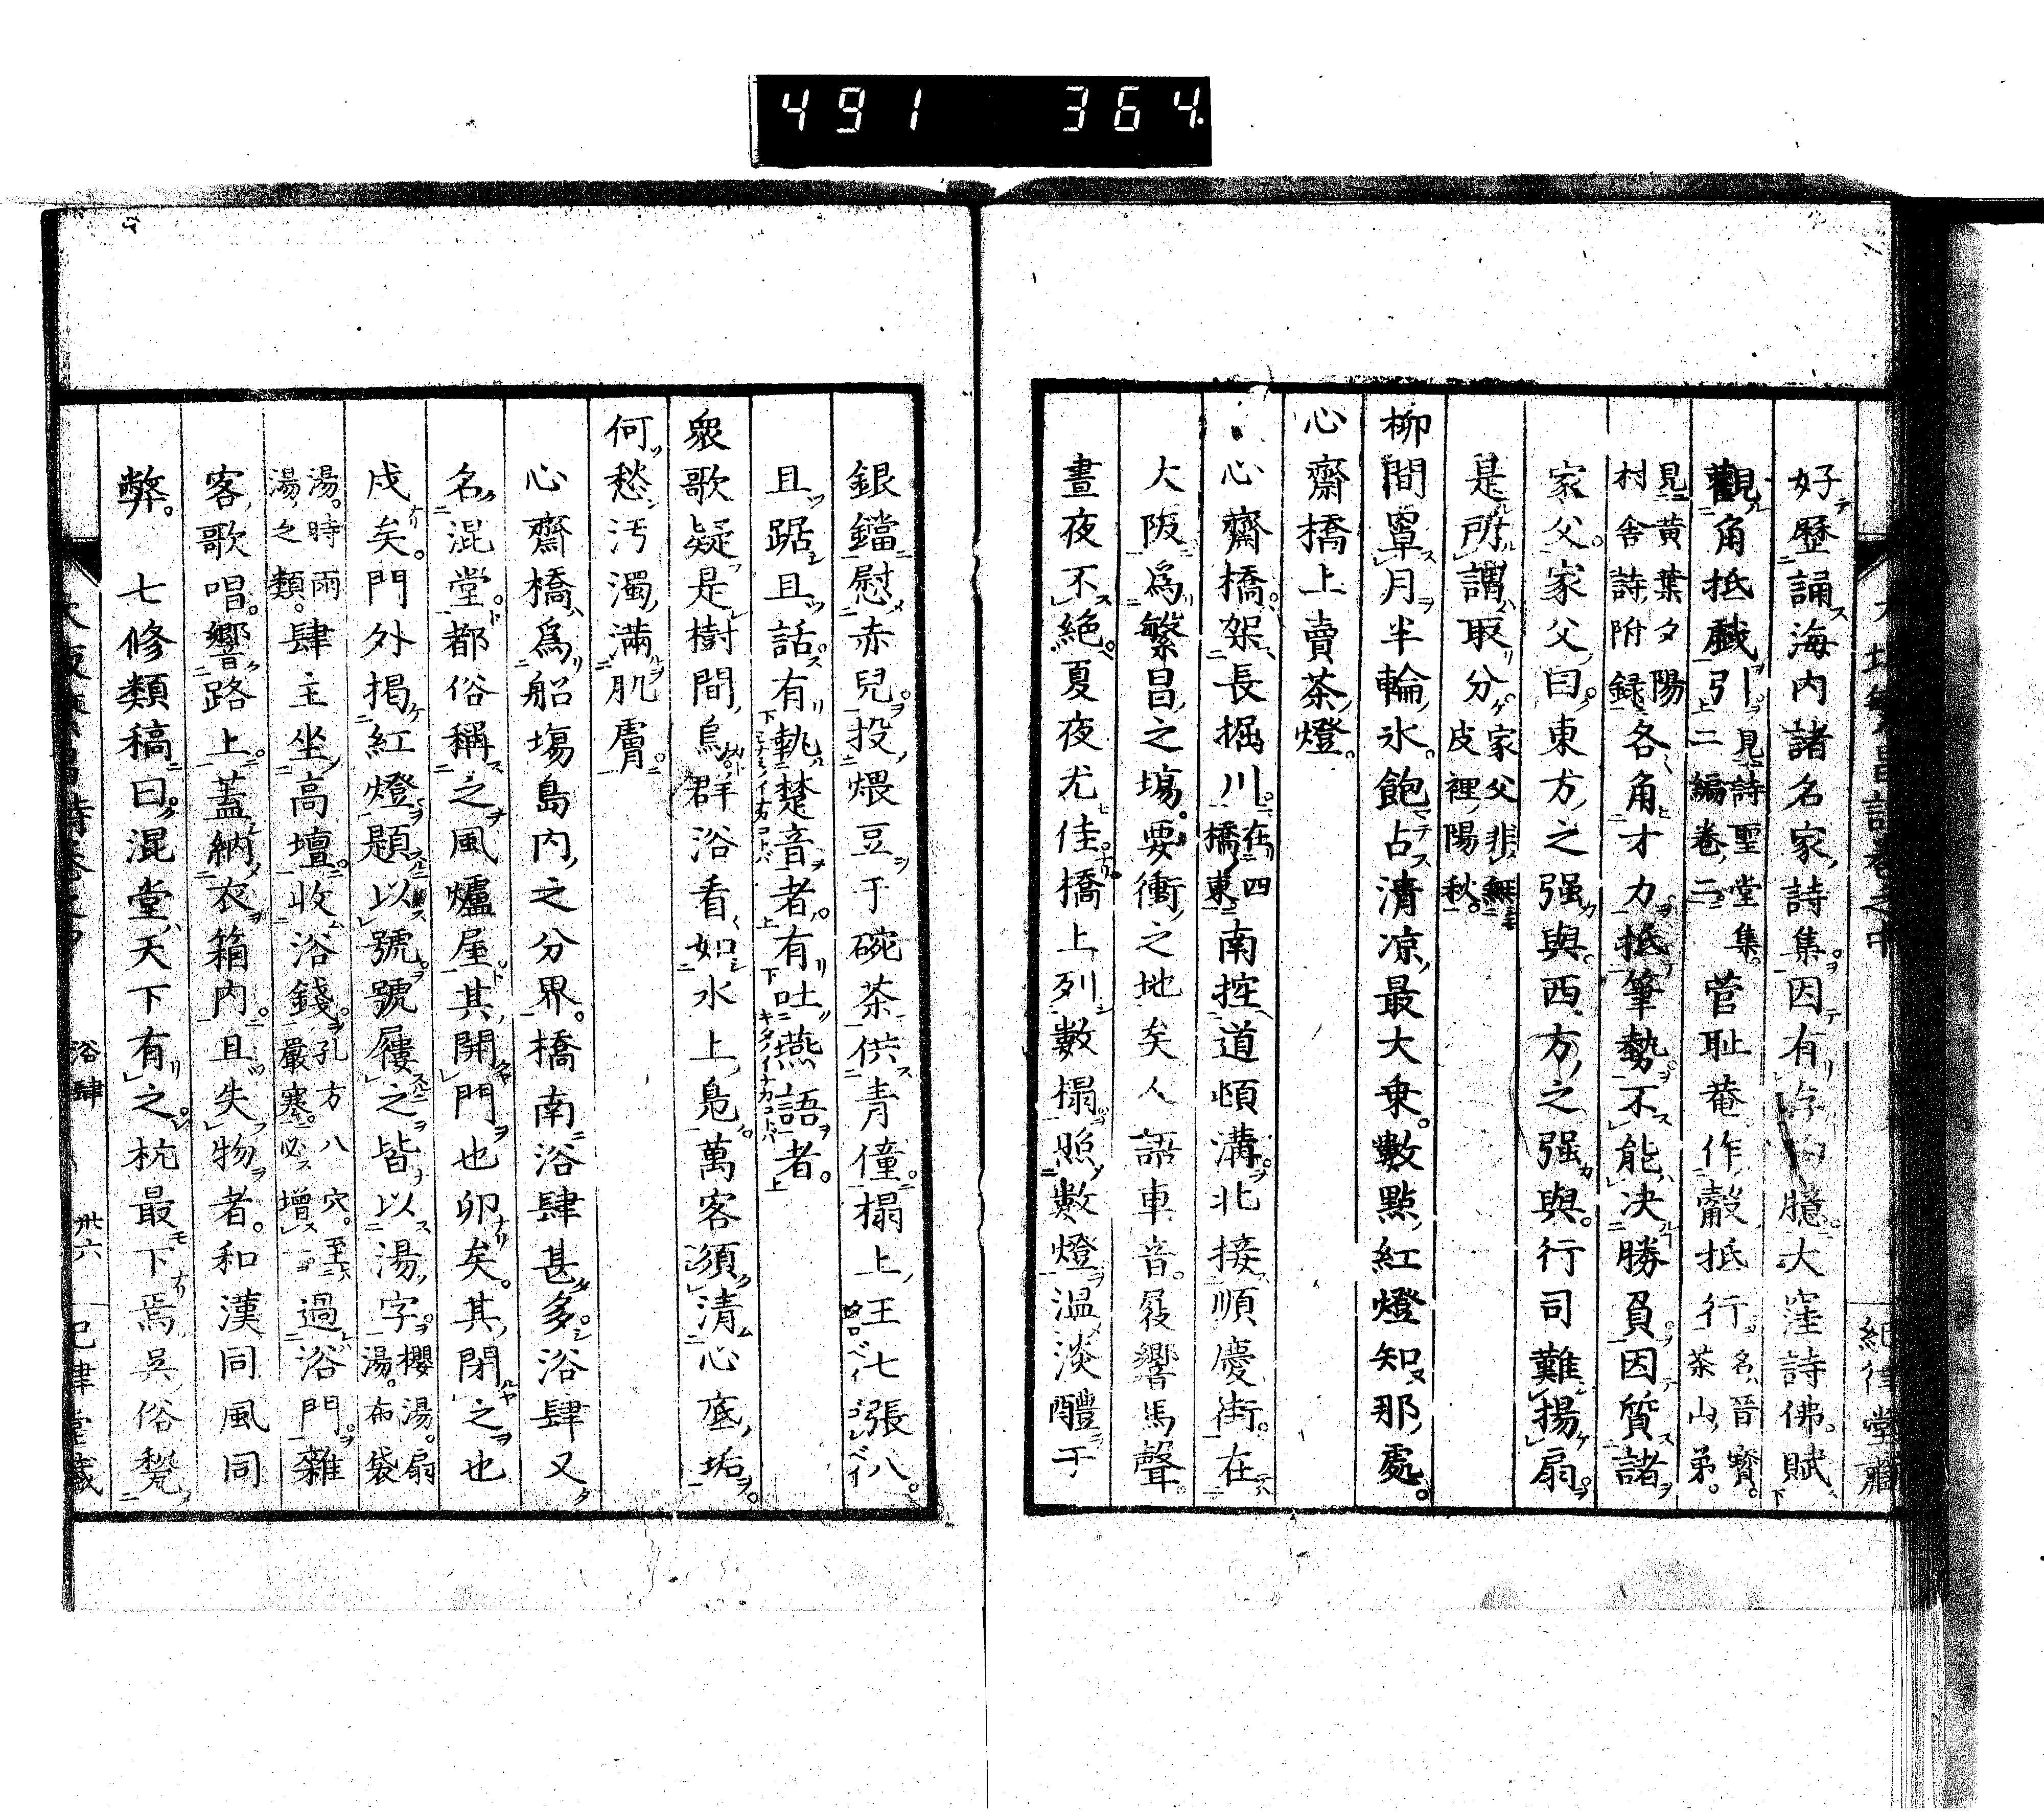 491 364
好歷誦海内諸名家詩集因有臆大窪詩佛賦
觀角抵戲引見詩聖堂集二編卷二菅耻菴作觳抵行名晉寳茶山弟
見黄葉夕陽村舎詩附録各角才力抵筆勢不能决勝負因質諸
家父家父曰東方之强與西方之强與行司難揚扇
是所謂取分家父非無皮裡陽秋
柳間罩月半輪氷飽占清凉最大乗數點紅燈知那處
心齋橋上賣茶燈
心齋橋架長掘川在四橋東南控道頓溝北接順慶街在
大阪爲繁昌之塲要衝之地矣人語車音屐響馬聲
晝夜不絶夏夜尤佳橋上列數榻照數燈温淡醴于
銀鐺慰赤兒投煨豆于碗茶供青僮榻上王七張八
且踞且話有執楚音者有吐燕語者
衆歌疑是樹間烏群浴看如水上鳧萬客須清心底垢
何愁汚濁滿肌膚
心齋橋爲船塲島内之分界橋南浴肆甚多浴肆又
名混堂都俗稱之風爐屋其開門也卯矣其閉之也
戌矣門外掲紅燈題以號號屨之皆以湯字櫻湯扇湯布袋
湯時雨湯之類肆主坐高壇收浴錢孔方八穴至嚴寒必増過浴門雜
客歌唱響路上蓋納衣箱内且失物者和漢同風同
弊　七修類稿曰混堂天下有之杭最下焉吳俗甃
浴肆　卅六